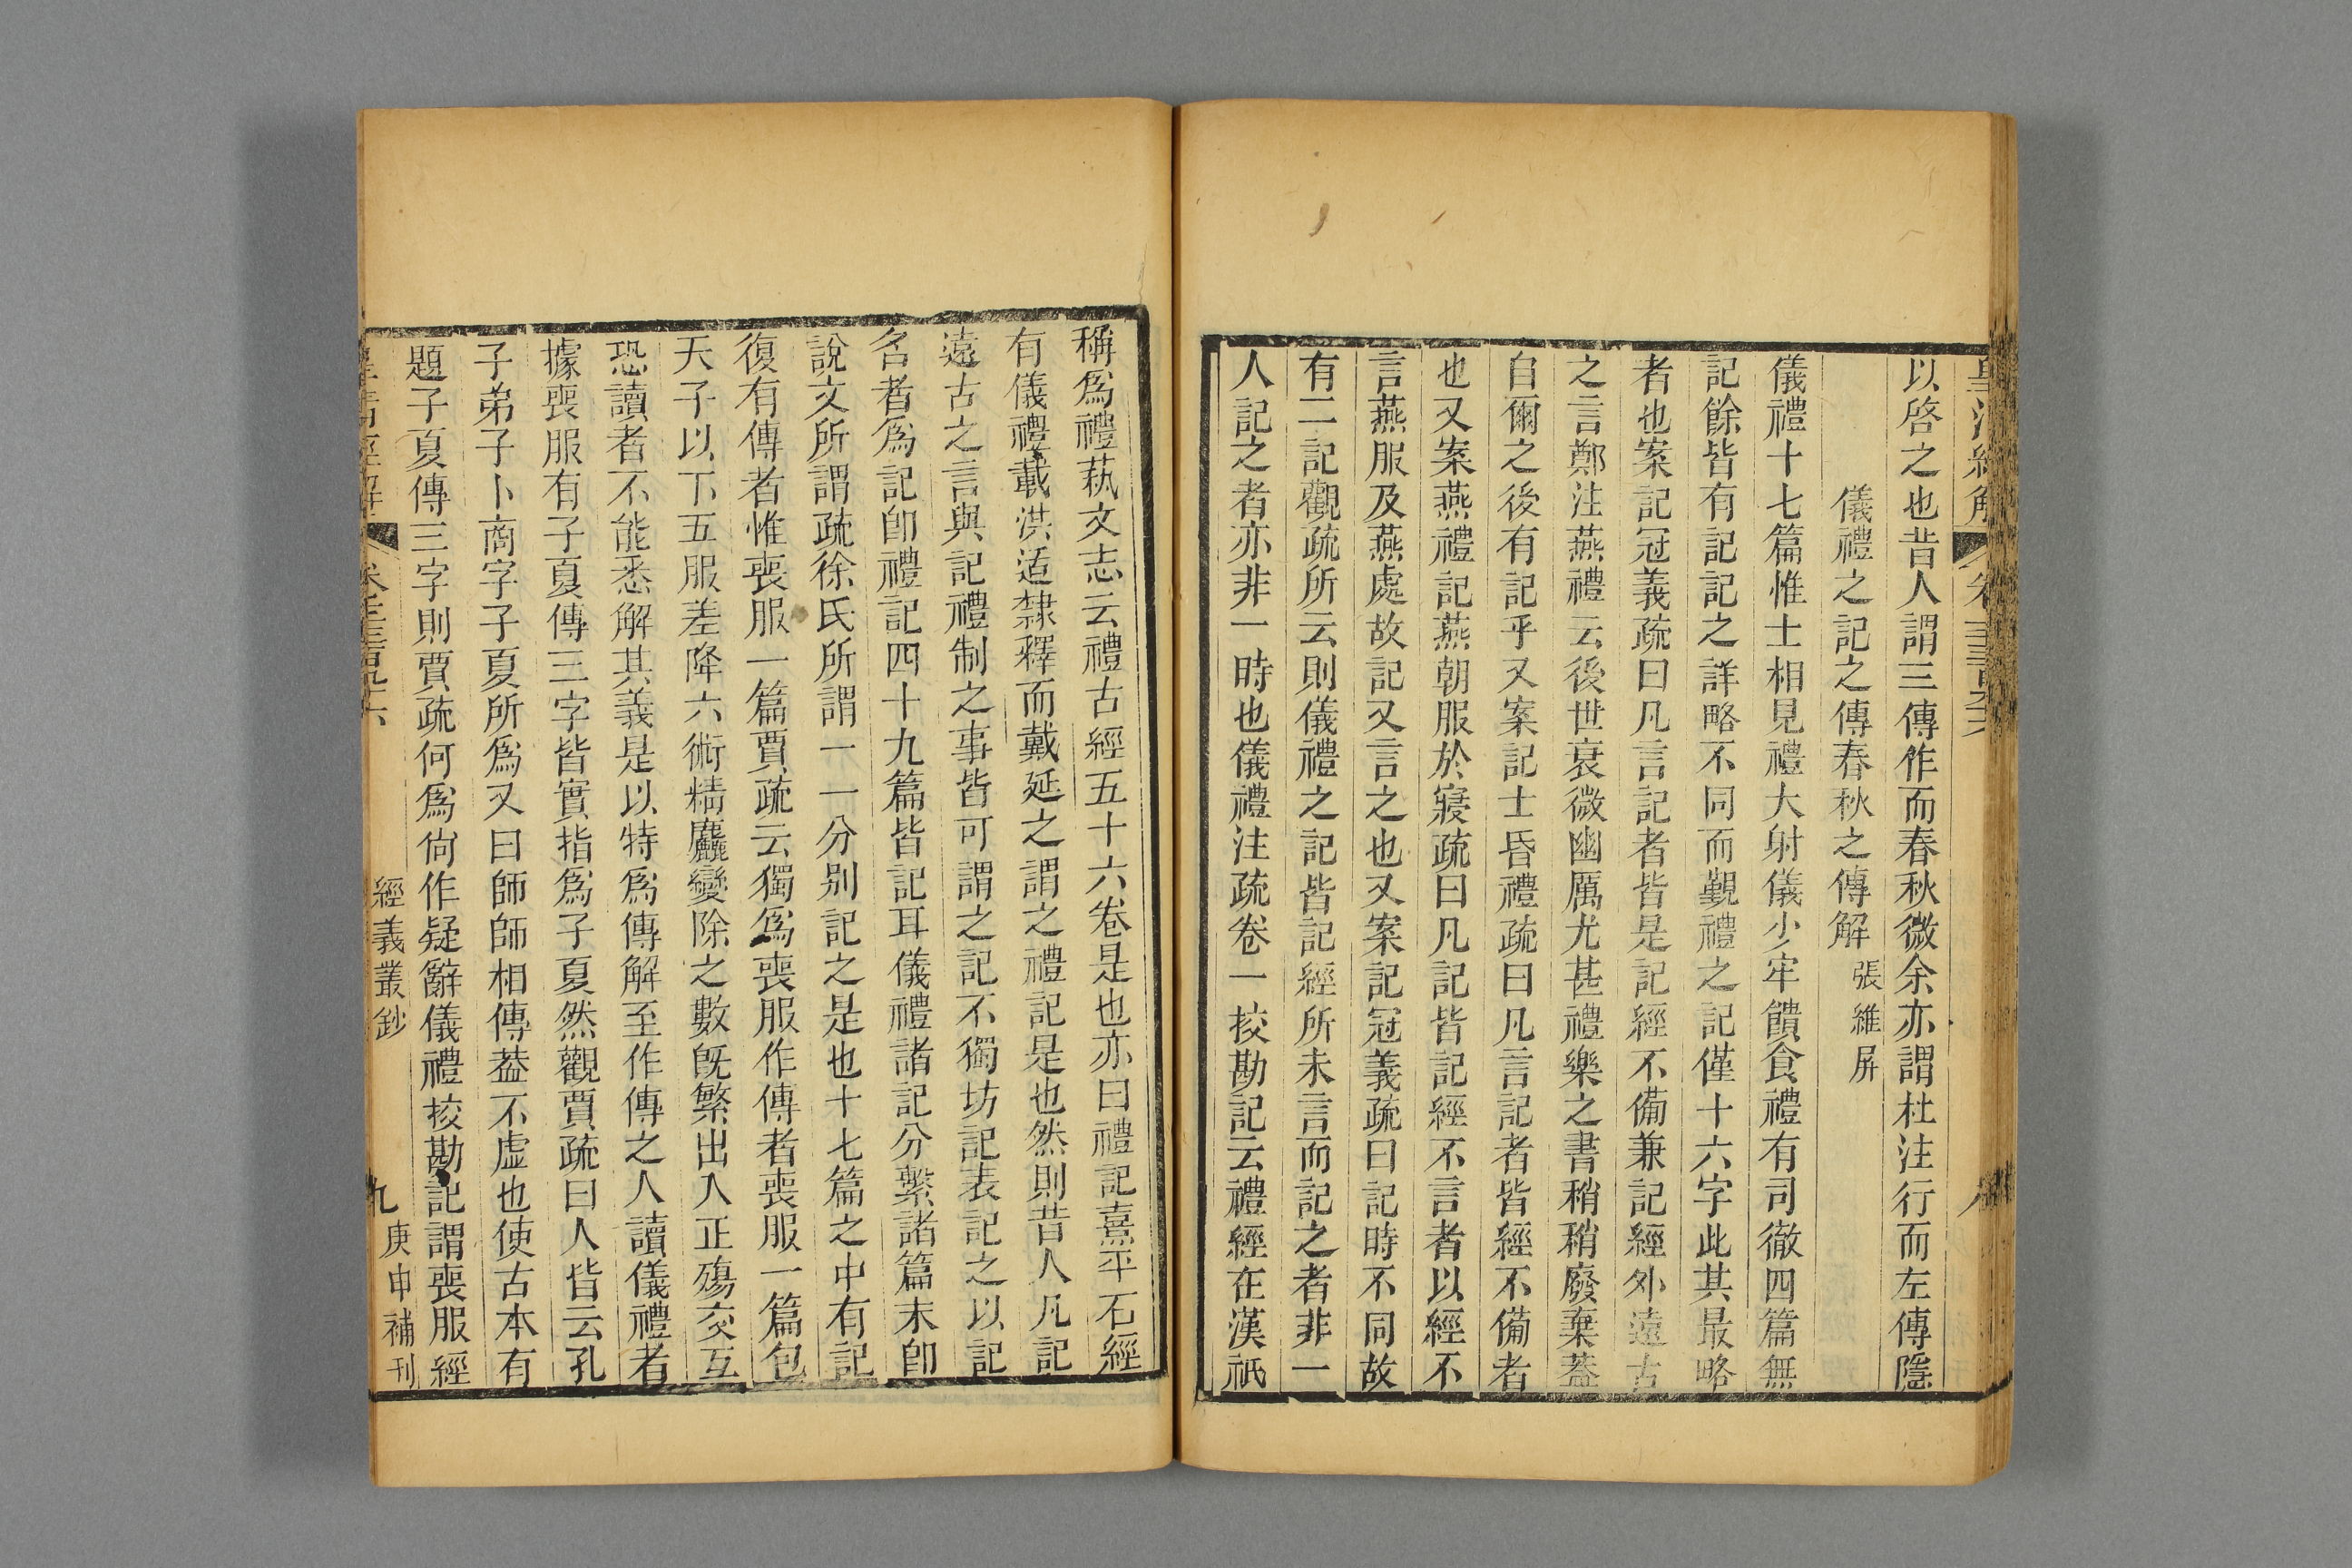 以啓之也昔人謂三傳作而春秋微余亦謂杜注行而左傳隱
儀禮之記之傳春秋之傳解 張維屏
儀禮十七篇惟士相見禮大射儀少牢饋食禮有司徹四篇無
記餘皆有記記之詳略不同而覲禮之記僅十六字此其最略
者也案記冠義疏曰凡言記者皆是記經不備兼記經外遠古
之言鄭注燕禮云後世衰微幽厲尤甚禮樂之書稍稍廢棄蓋
自爾之後有記乎又案記士昏禮疏曰凡言記者皆經不備者
也又案燕禮記燕朝服於寢疏曰凡記皆記經不言者以經不
言燕服及燕處故記又言之也又案記冠義疏曰記時不同故
有二記觀疏所云則儀禮之記皆記經所未言而記之者非一
人記之者亦非一時也儀禮注疏卷一挍勘記云禮經在漢祇
稱爲禮蓺文志云禮古經五十六卷是也亦曰禮記熹平石經
有儀禮載洪适隸釋而戴延之謂之禮記是也然則昔人凡記
遠古之言與記禮制之事皆可謂之記不獨坊記表記之以記
名者爲記卽禮記四十九篇皆記耳儀禮諸記分繫諸篇末卽
說文所謂疏徐氏所謂一一分別記之是也十七篇之中有記
復有傳者惟喪服一篇賈疏云獨爲喪服作傳者喪服一篇包
天子以下五服差降六術精麤變除之數旣繁出入正殤交互
恐讀者不能悉解其義是以特爲傳解至作傳之人讀儀禮者
據喪服有子夏傳三字皆實指爲子夏然觀賈疏曰人皆云孔
子弟子卜商字子夏所爲又曰師師相傳葢不虛也使古本有
題子夏傳三字則賈疏何爲尙作疑辭儀禮挍勘記謂喪服經
皇淸經解 經義叢鈔 九 庚申補刊